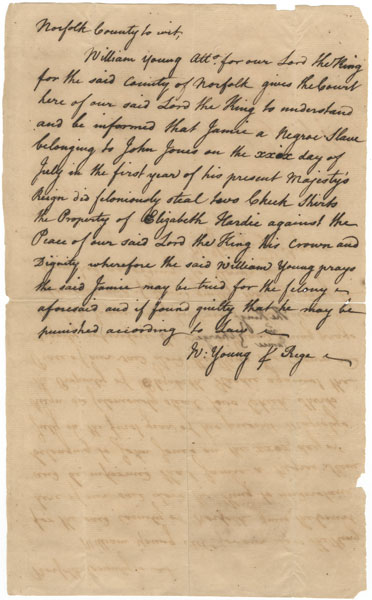 Norfolk County to wit,
William Young Atto. for our Lord the King
for the said County of Norfolk gives the Court
here of our said Lord the King to understand
and be informed that Jamie a Negroe Slave
belonging to John Jones on the xxix day of
July in the first year of his present Majesty's
Reign did feloniously steal two Check Shirts
the Property of Elizabeth Hardie against the
Peace of our said Lord the King his Crown and
Dignity wherefore the said William Young prays
the said Jamie may be tried for the felony
aforesaid and if found guilty that he may be
punished according to Law
W: Young Rege